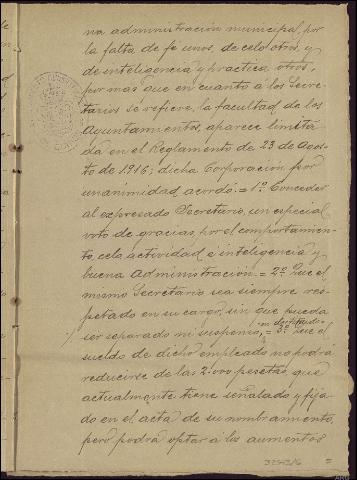 na administración municipal, por
la falta de fé unos, de celo otros, y
de inteligencia y practica otros,
por mas que en cuanto á los Secre-
tarios se refiere, la facultad de los
Ayuntamientos, aparece limita-
da en el Reglamento de 23 de Agos-
to de 1.916; dicha Corporación por
unanimidad acordó: = 1º Conceder
al expresado Secretario, un especial
voto de gracias, por el comportamien-
to, celo, actividad é inteligencia y
buena administración. = 2º Que el
mismo Secretario sea siempre res-
petado en su cargo, sin que pueda
ser separado ni suspenso, ni destituido = 3º Que el
sueldo de dicho empleado no podrá
reducirse de las 2.000 pesetas, que
actualmente tiene señalado y fija-
do en el acta de su nombramiento,
pero podrá optar á los aumentos